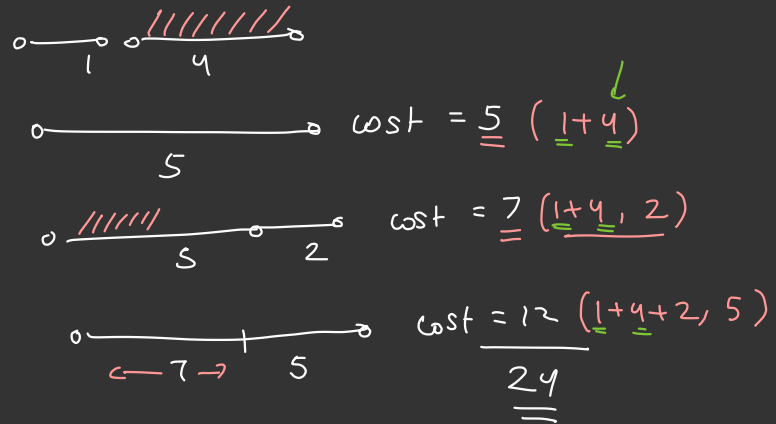 1 4
5
cost = 5 (1+4)
5 2
cost = 7 (1+4, 2)
7 5
cost = 12 (1+4+2, 5)
24